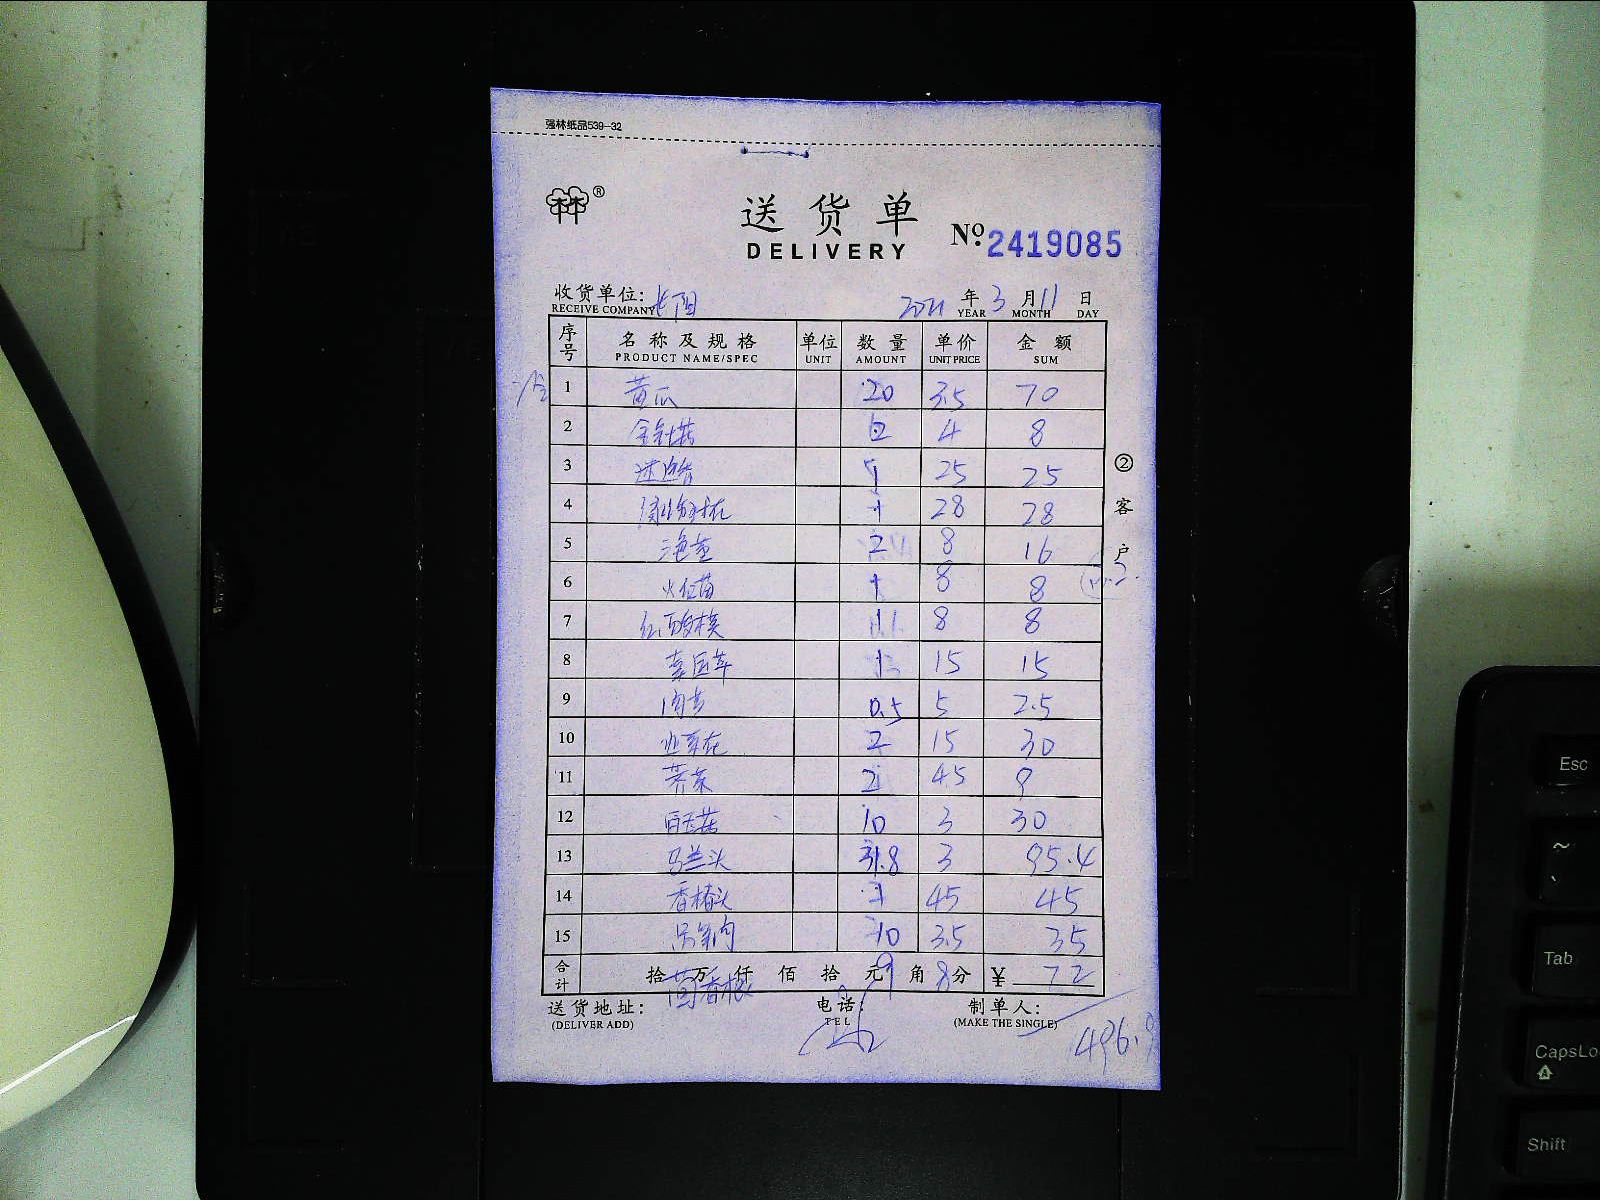 强林纸品539-32
®
送货单
DELIVERY
№ 2419085
收货单位: 2021 年 3 月 11 日
RECEIVE COMPANY YEAR MONTH DAY
序号 名称及规格 单位 数量 单价 金额
PRODUCT NAME/SPEC UNIT AMOUNT UNIT PRICE SUM
1 黄瓜 20 3.5 70
2 金针菇 2 4 8
3 迷迭香 1 25 25
4 1 28 28
5 2 8 16
6 1 8 8
7 1 8 8
8 1 15 15
9 0.5 5 2.5
10 韭菜花 2 15 30
11 荠菜 2 4.5 9
12 白玉菇 10 3 30
13 马兰头 31.8 3 95.4
14 香椿头 1 45 45
15 10 3.5 35
合计 拾 万 仟 佰 拾 元 9 角 8 分 ¥ 72
茴香根
送货地址: 电话: 制单人:
(DELIVER ADD) TEL (MAKE THE SINGLE)
496.9
②客户
Esc
~
Tab
CapsLo
Shift